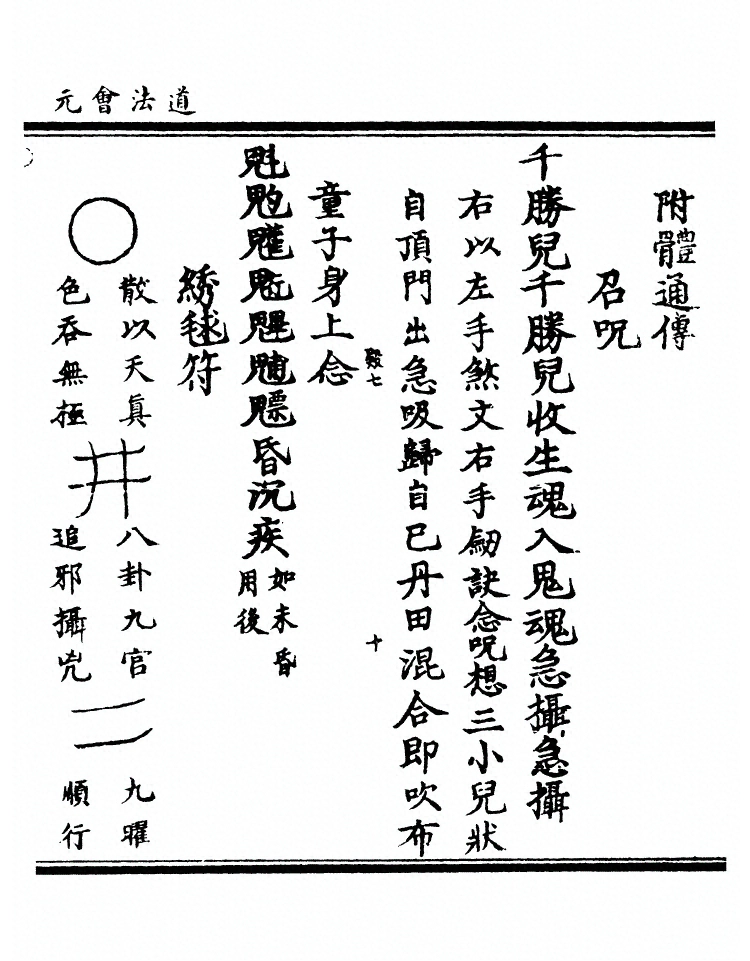 道法會元
附體通傳
召呪
千勝兒千勝兒收生魂入鬼魂急攝急攝
右以左手煞文右手劒訣念呪想三小兒狀
自頂門出急吸歸自己丹田混合即吹布
毀七
十
童子身上念
魁魒昏沉疾
如未昏
用後
綉毬符
散以天真
色吞無極
八卦九官
追邪攝兇
九曜
順行